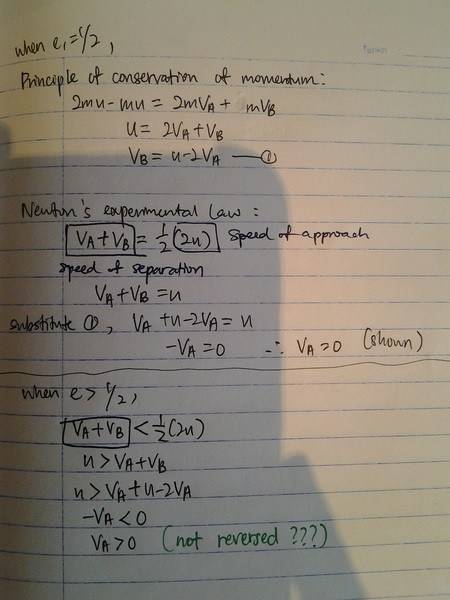 when e₁=1/2,
Principle of conservation of momentum:
2mu-mu = 2mVA + mVB
u = 2VA+VB
VB = u-2VA —①
Newton's experimental Law :
VA+VB = 1/2 (2u) speed of approach
speed of separation
VA+VB = u
substitute ①, VA +u-2VA = u
-VA = 0 ∴ VA = 0 (shown)
when e > 1/2,
VA+VB < 1/2(2u)
u > VA+VB
u > VA+u-2VA
-VA < 0
VA > 0 (not reversed ???)